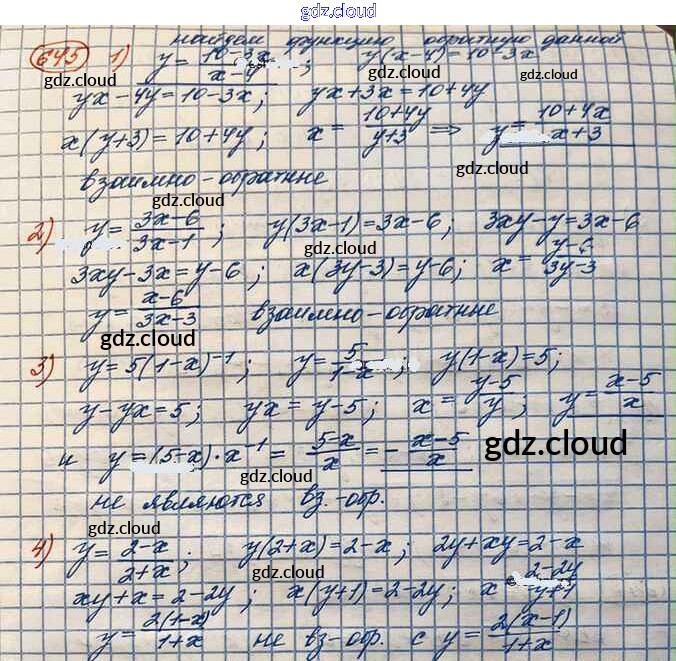 gdz.cloud
найдем функцию обратную данной
645 1) y = (10-3x)/(x-4) ; y(x-4) = 10-3x
gdz.cloud gdz.cloud
yx-4y = 10-3x; yx+3x = 10+4y
x(y+3) = 10+4y; x = (10+4y)/(y+3) => y = (10+4x)/(x+3)
gdz.cloud
взаимно-обратные
gdz.cloud
2) y = (3x-6)/(3x-1) ; y(3x-1) = 3x-6; 3xy-y = 3x-6
gdz.cloud
3xy-3x = y-6; x(3y-3) = y-6; x = (y-6)/(3y-3)
y = (x-6)/(3x-3) взаимно-обратные
gdz.cloud
3) y = 5(1-x)⁻¹; y = 5/(1-x) ; y(1-x) = 5;
y-yx = 5; yx = y-5; x = (y-5)/y ; y = (x-5)/x
и y = (5-x)·x⁻¹ = (5-x)/x = -(x-5)/x
gdz.cloud
не являются вз.-обр.
gdz.cloud
4) y = (2-x)/(2+x) ; y(2+x) = 2-x; 2y+xy = 2-x
gdz.cloud
xy+x = 2-2y; x(y+1) = 2-2y; x = (2-2y)/(y+1)
y = 2(1-x)/(1+x) не вз-обр. с y = 2(x-1)/(1+x)
gdz.cloud